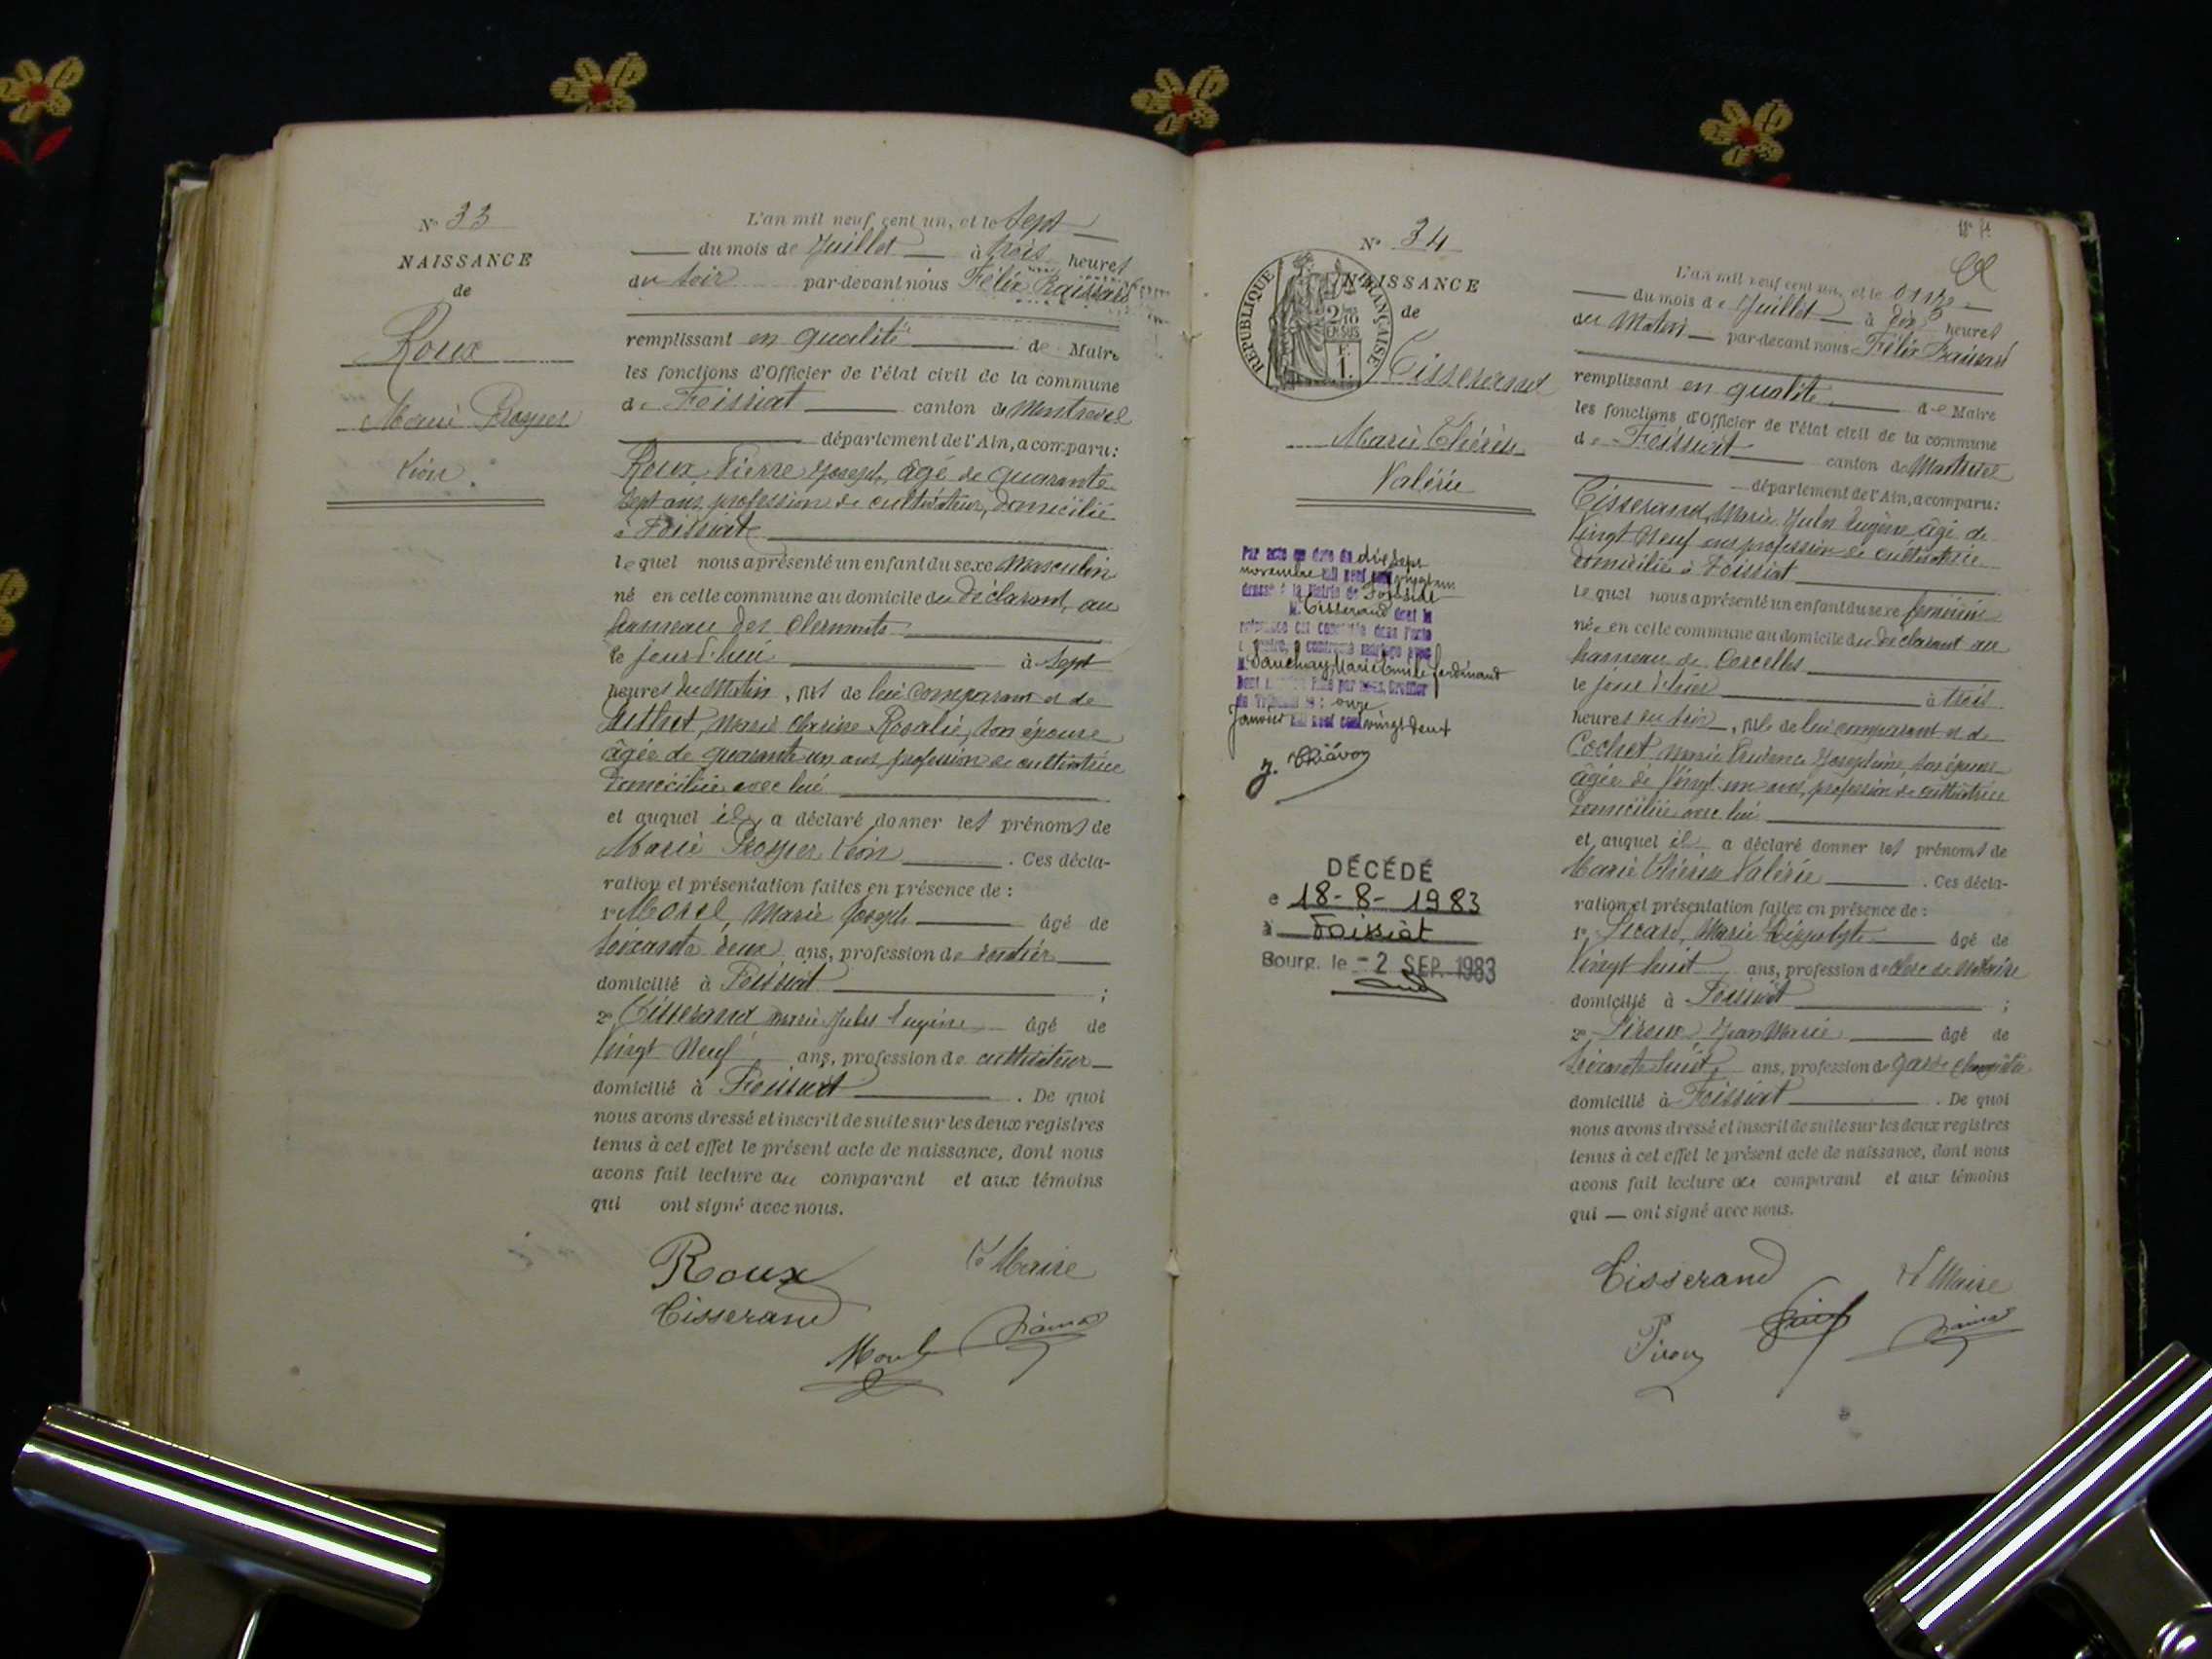 N° 33
NAISSANCE
de
Roux
Marie Prosper
Léon
L'an mil neuf cent un, et le Sept
du mois de Juillet à trois heures
du soir par-devant nous Félix
remplissant en qualité de Maire
les fonctions d'Officier de l'état civil de la commune
de Foissiat canton de Montrevel
département de l'Ain, a comparu:
Roux Pierre Joseph, âgé de quarante
sept ans, profession de cultivateur, domicilié
à Foissiat
lequel nous a présenté un enfant du sexe Masculin
né en cette commune au domicile du déclarant, au
hameau des Clermonts
le jour d'hui à Sept
heures du Matin, fils de lui comparant et de
Marie Clarisse Rosalie, son épouse
âgée de quarante un ans, profession de cultivatrice
Domiciliée avec lui
et auquel il a déclaré donner les prénoms de
Marie Prosper Léon . Ces décla-
ration et présentation faites en présence de :
1° Morel, Marie Joseph âgé de
Soixante deux ans, profession de rentier
domicilié à Foissiat ;
2° Tisserand Marie Jules Eugène âgé de
Vingt Neuf ans, profession de cultivateur
domicilié à Foissiat . De quoi
nous avons dressé et inscrit de suite sur les deux registres
tenus à cet effet le présent acte de naissance, dont nous
avons fait lecture au comparant et aux témoins
qui ont signé avec nous.
Roux
Le Maire
Tisserand
Morel
N° 34
NAISSANCE
de
RÉPUBLIQUE FRANÇAISE
2/10
EN SUS
F.
1.
Tisserand
Marie Thérèse
Valérie
Par acte en date du dix sept
novembre mil neuf cent vingt un
dressé à la Mairie de Foissiat
M. Tisserand dont la
naissance est constatée dans l'acte
ci-contre, a contracté mariage avec
M. Marie Emile Ferdinand
Dont mention faite par nous, Greffier
du Tribunal le : onze
Janvier mil neuf cent vingt deux
DÉCÉDÉ
e 18-8-1983
à Foissiat
Bourg, le -2 SEP. 1983
L'an mil neuf cent un, et le onze
du mois de Juillet à dix heures
du Matin par-devant nous Félix
remplissant en qualité de Maire
les fonctions d'Officier de l'état civil de la commune
de Foissiat canton de Montrevel
département de l'Ain, a comparu:
Tisserand, Marie Jules Eugène âgé de
Vingt Neuf ans profession de cultivatrice
domicilié à Foissiat
lequel nous a présenté un enfant du sexe féminin
née en cette commune au domicile du déclarant au
hameau de Corcelles
le jour d'hier à trois
heures du soir, fille de lui comparant et de
Cochet Marie Prudence Joséphine, son épouse
âgée de Vingt un ans, profession de cultivatrice
Domiciliée avec lui
et auquel il a déclaré donner les prénoms de
Marie Thérèse Valérie . Ces décla-
ration et présentation faites en présence de :
1° Marie Hippolyte âgé de
Vingt huit ans, profession de clerc de Notaire
domicilié à Foissiat ;
2° Piroux Jean Marie âgé de
Soixante huit ans, profession de garde champêtre
domicilié à Foissiat . De quoi
nous avons dressé et inscrit de suite sur les deux registres
tenus à cet effet le présent acte de naissance, dont nous
avons fait lecture au comparant et aux témoins
qui ont signé avec nous.
Tisserand
Le Maire